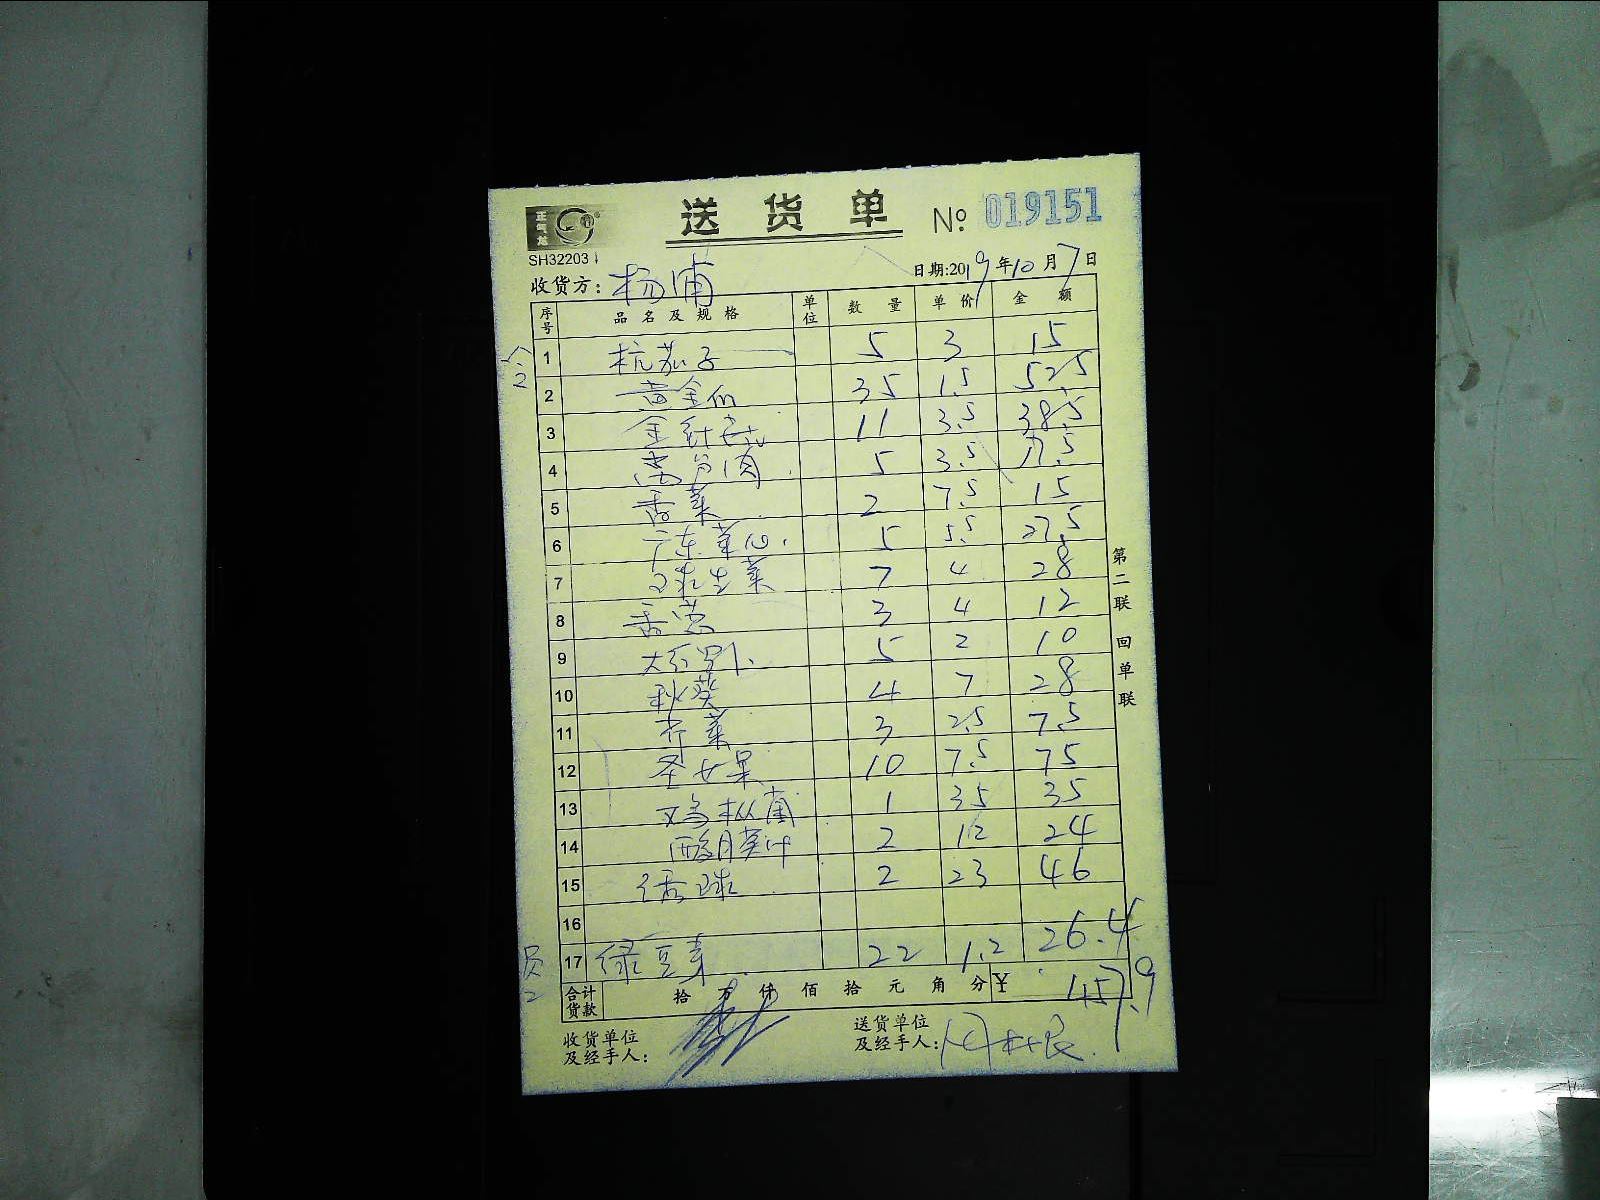 正气龙
送货单 № 019151
SH32203
日期:2019年10月7日
收货方: 杨浦
序号 品名及规格 单位 数量 单价 金额
1 杭茄子 5 3 15
2 黄金瓜 35 1.5 52.5
3 金针菇 11 3.5 38.5
4 5 3.5 17.5
5 香菜 2 7.5 15
6 广东菜心 5 5.5 27.5
7 球生菜 7 4 28
8 香芹 3 4 12
9 大红 5 2 10
10 秋葵 4 7 28
11 芹菜 3 2.5 7.5
12 圣女果 10 7.5 75
13 鸡枞菌 1 35 35
14 叶 2 12 24
15 球 2 23 46
16
17 绿豆芽 22 1.2 26.4
合计货款 拾 万 仟 佰 拾 元 角 分 ¥ 457.9
收货单位及经手人:
送货单位及经手人: 周根
第二联 回单联